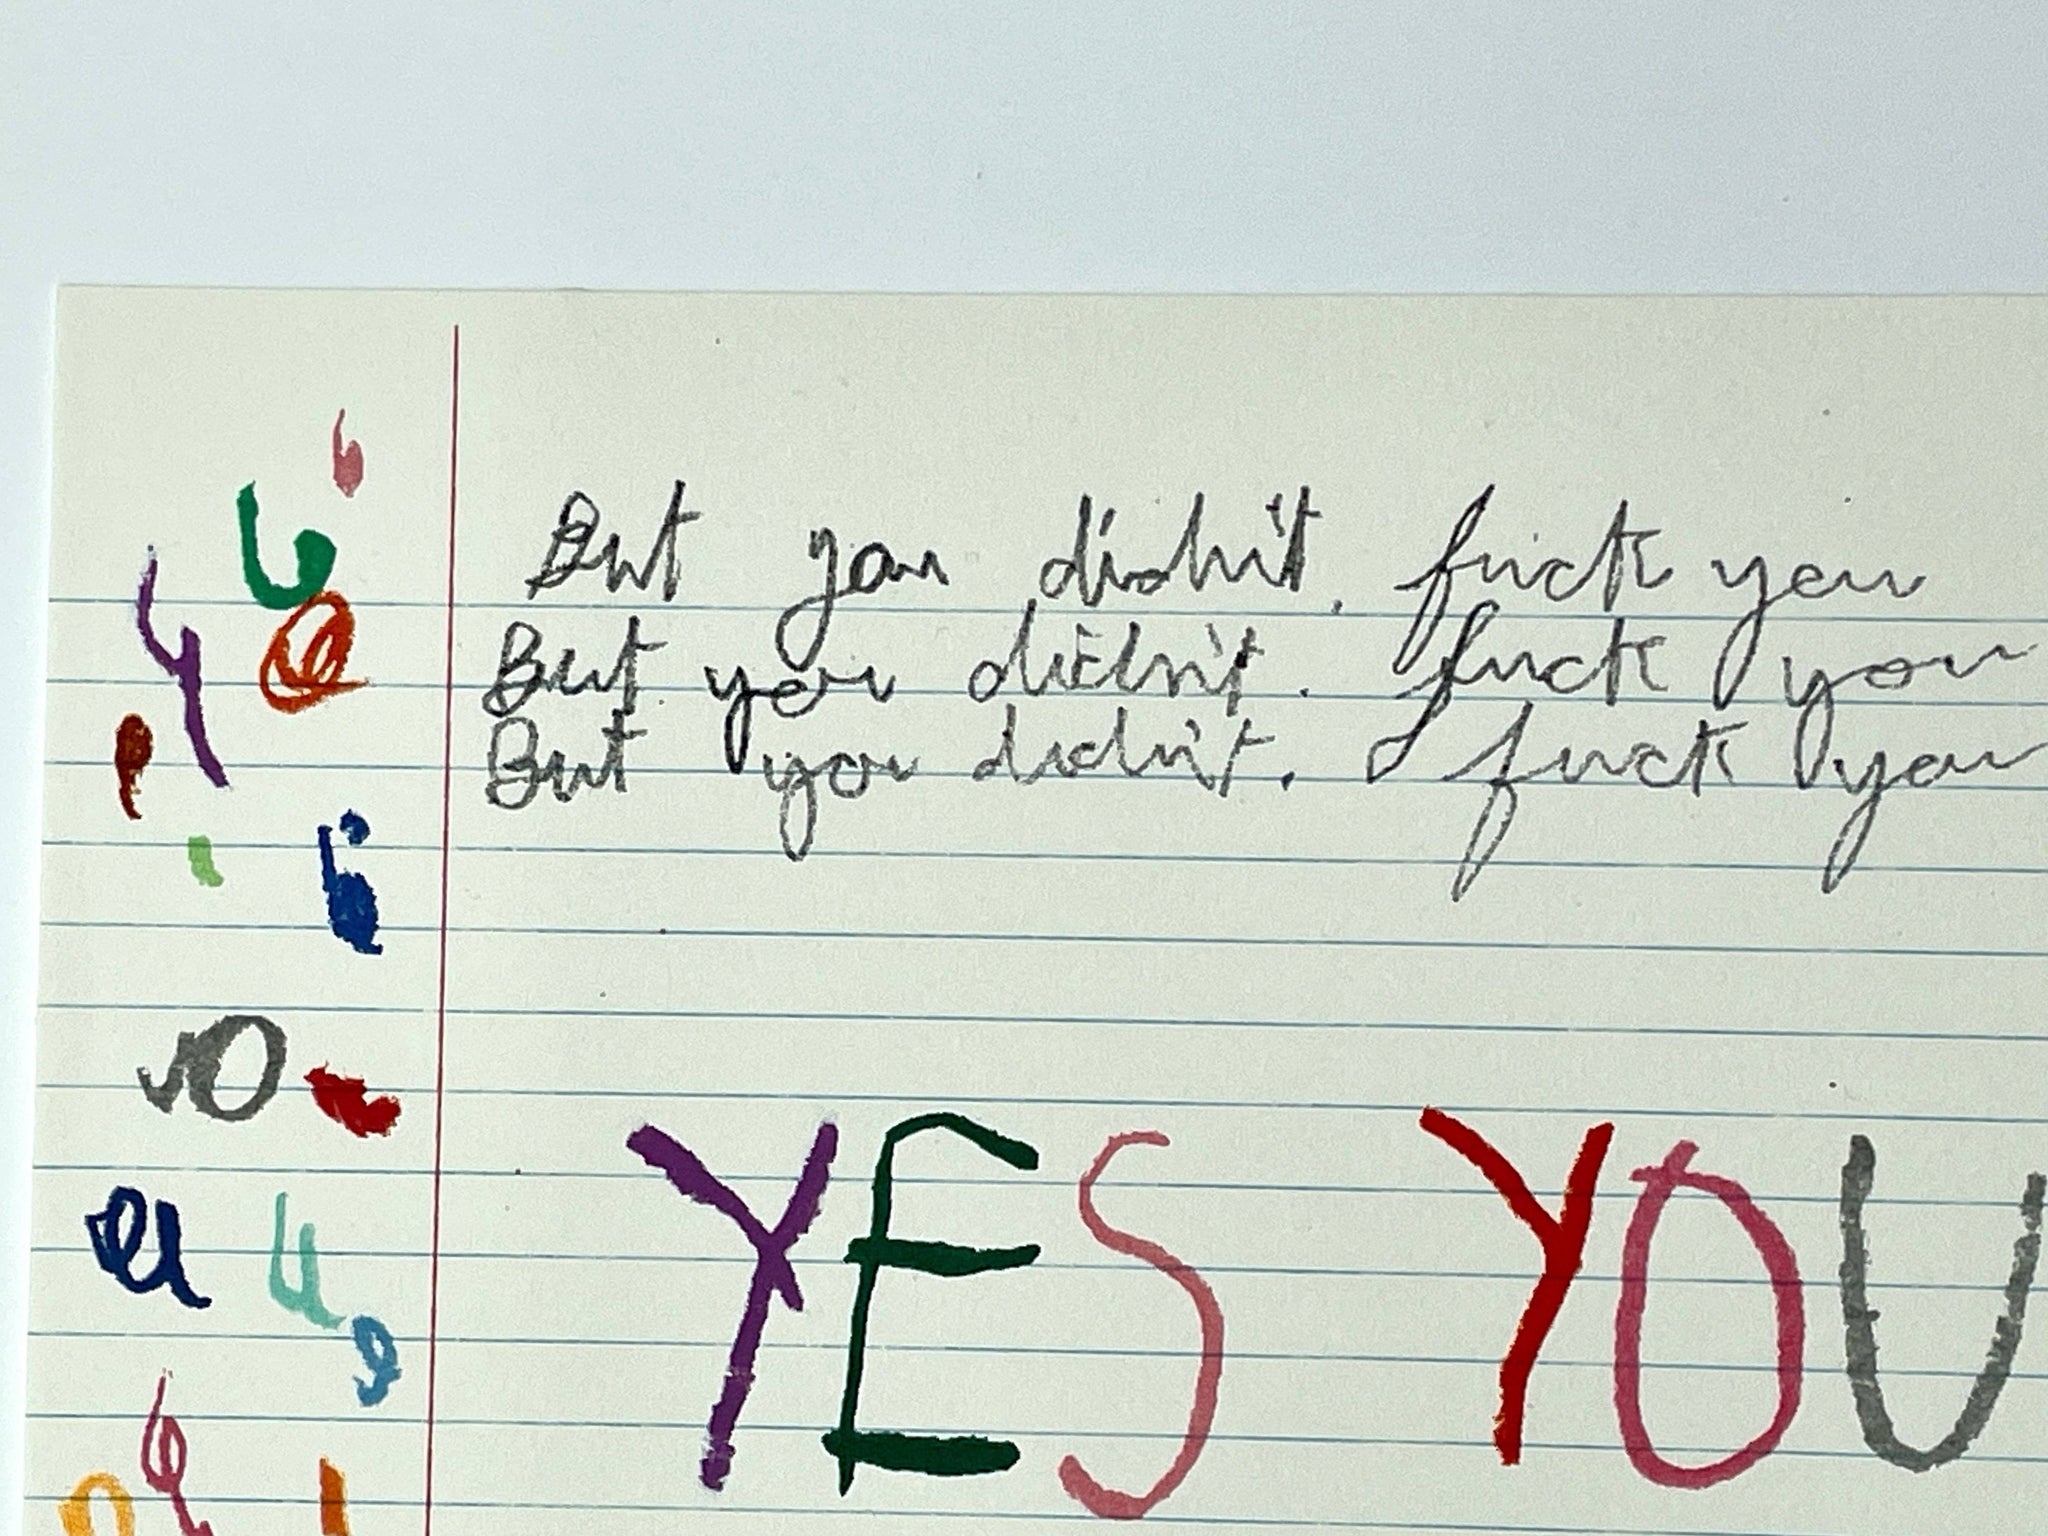 But you didn't. fuck you
But you didn't. fuck you
But you didn't. fuck you
YES YOU